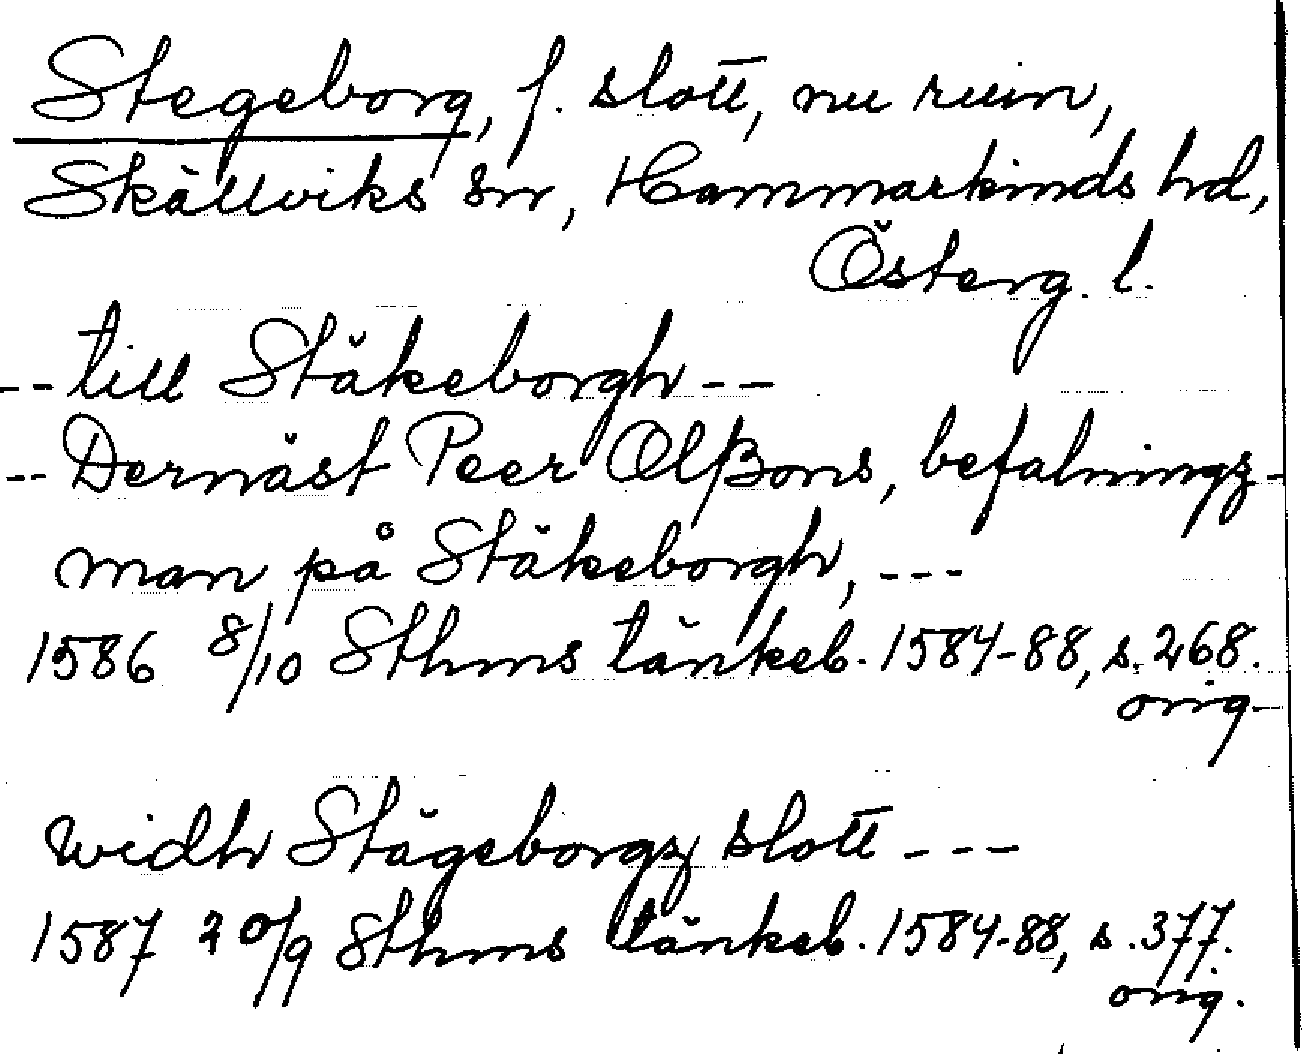 Stegeborg, f. slott, nu ruin,
Skällviks sn, Hammarkinds hd,
Österg. l.
-- till Stäkeborgh --
-- Dernäst Peer Olßons, befalningz-
man på Stäkeborgh, ---
1586 8/10 Sthms tänkeb. 1584-88, s. 268.
orig.
widh Stägeborgz slott ---
1587 20/9 Sthms tänkeb. 1584-88, s. 377.
orig.